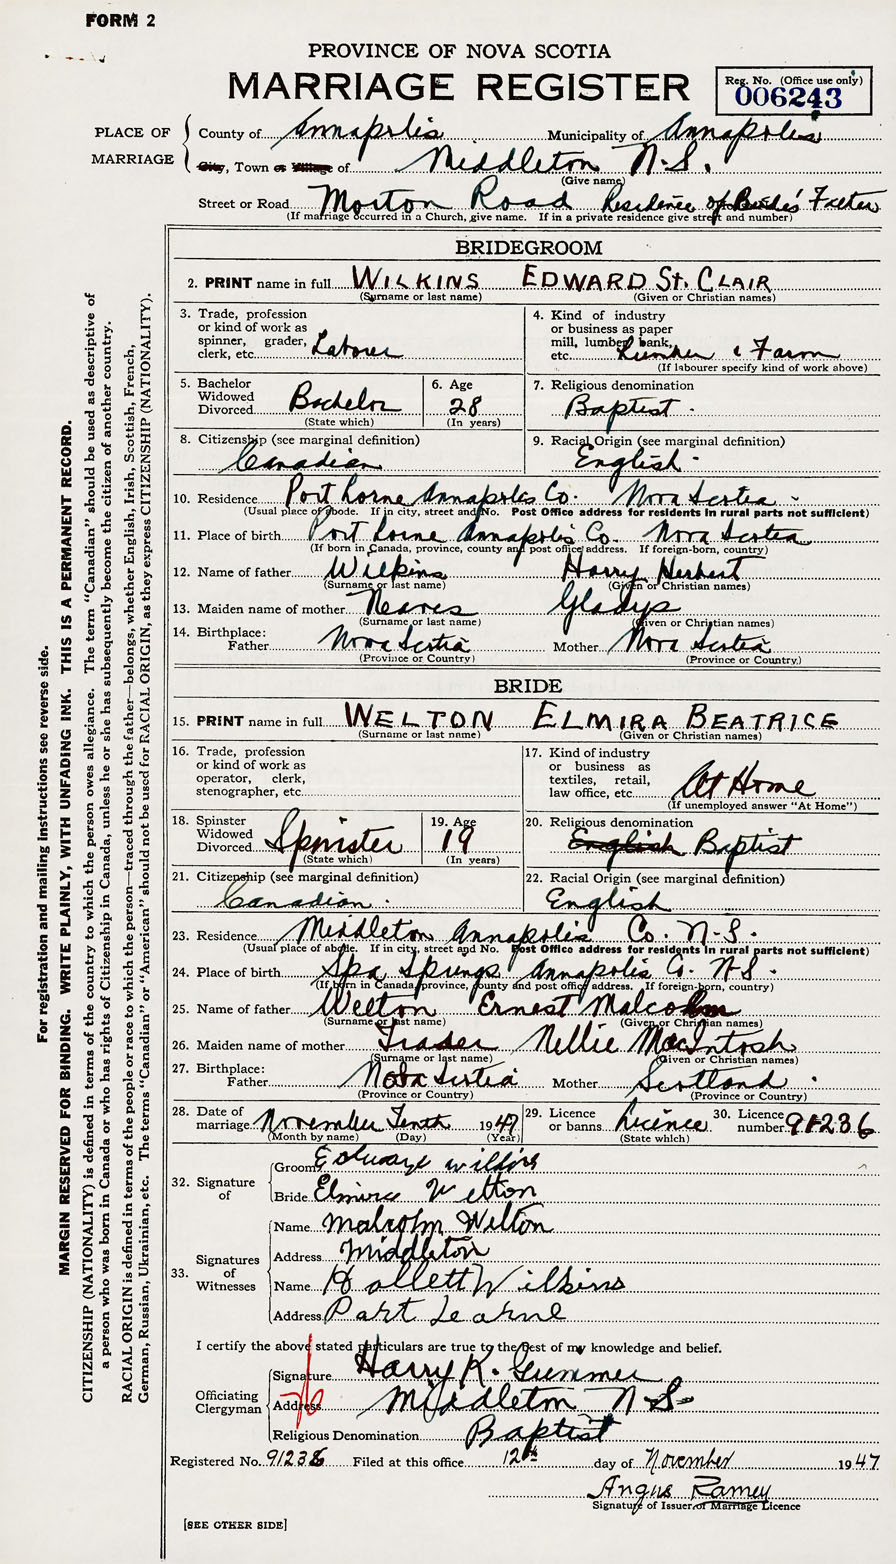 FORM 2
PROVINCE OF NOVA SCOTIA
MARRIAGE REGISTER
Reg. No. (Office use only)
006243
PLACE OF MARRIAGE
County of Annapolis Municipality of Annapolis
City, Town or Village of Middleton N.S.
(Give name)
Street or Road Morton Road Residence of Bride's Father
(If marriage occurred in a Church, give name. If in a private residence give street and number)
BRIDEGROOM
2. PRINT name in full WILKINS EDWARD St. CLAIR
(Surname or last name) (Given or Christian names)
3. Trade, profession
or kind of work as
spinner, grader,
clerk, etc. Laborer
4. Kind of industry
or business as paper
mill, lumber, bank,
etc. Lumber & Farm
(If labourer specify kind of work above)
5. Bachelor
Widowed
Divorced Bachelor
(State which)
6. Age
28
(In years)
7. Religious denomination
Baptist
8. Citizenship (see marginal definition)
Canadian
9. Racial Origin (see marginal definition)
English
10. Residence Port Lorne Annapolis Co. Nova Scotia
(Usual place of abode. If in city, street and No. Post Office address for residents in rural parts not sufficient)
11. Place of birth Port Lorne Annapolis Co. Nova Scotia
(If born in Canada, province, county and post office address. If foreign-born, country)
12. Name of father Wilkins Harry Herbert
(Surname or last name) (Given or Christian names)
13. Maiden name of mother Neaves Gladys
(Surname or last name) (Given or Christian names)
14. Birthplace:
Father Nova Scotia Mother Nova Scotia
(Province or Country) (Province or Country.)
BRIDE
15. PRINT name in full WELTON ELMIRA BEATRICE
(Surname or last name) (Given or Christian names)
16. Trade, profession
or kind of work as
operator, clerk,
stenographer, etc.
17. Kind of industry
or business as
textiles, retail,
law office, etc. At Home
(If unemployed answer "At Home")
18. Spinster
Widowed
Divorced Spinister
(State which)
19. Age
19
(In years)
20. Religious denomination
English Baptist
21. Citizenship (see marginal definition)
Canadian
22. Racial Origin (see marginal definition)
English
23. Residence Middleton Annapolis Co. N.S.
(Usual place of abode. If in city, street and No. Post Office address for residents in rural parts not sufficient)
24. Place of birth Spa Springs Annapolis Co. N.S.
(If born in Canada, province, county and post office address. If foreign-born, country)
25. Name of father Welton Ernest Malcolm
(Surname or last name) (Given or Christian names)
26. Maiden name of mother Trader Nellie MacIntosh
(Surname or last name) (Given or Christian names)
27. Birthplace:
Father Nova Scotia Mother Scotland
(Province or Country) (Province or Country)
28. Date of
marriage November Tenth 1947
(Month by name) (Day) (Year)
29. Licence
or banns Licence
(State which)
30. Licence
number 91236
32. Signature of
Groom Edward Wilkins
Bride Elmira Welton
33. Signatures of Witnesses
Name Malcolm Welton
Address Middleton
Name Hallett Wilkins
Address Port Learne
I certify the above stated particulars are true to the best of my knowledge and belief.
Officiating Clergyman
Signature Harry K. Gummer
Address Middleton N-S-
Religious Denomination Baptist
Registered No. 91236 Filed at this office 12th day of November 1947
Angus Ramey
Signature of Issuer of Marriage Licence
[SEE OTHER SIDE]
For registration and mailing instructions see reverse side.
MARGIN RESERVED FOR BINDING. WRITE PLAINLY, WITH UNFADING INK. THIS IS A PERMANENT RECORD.
CITIZENSHIP (NATIONALITY) is defined in terms of the country to which the person owes allegiance. The term "Canadian" should be used as descriptive of
a person who was born in Canada or who has rights of Citizenship in Canada, unless he or she has subsequently become the citizen of another country.
RACIAL ORIGIN is defined in terms of the people or race to which the person—traced through the father—belongs, whether English, Irish, Scottish, French,
German, Russian, Ukrainian, etc. The terms "Canadian" or "American" should not be used for RACIAL ORIGIN, as they express CITIZENSHIP (NATIONALITY).